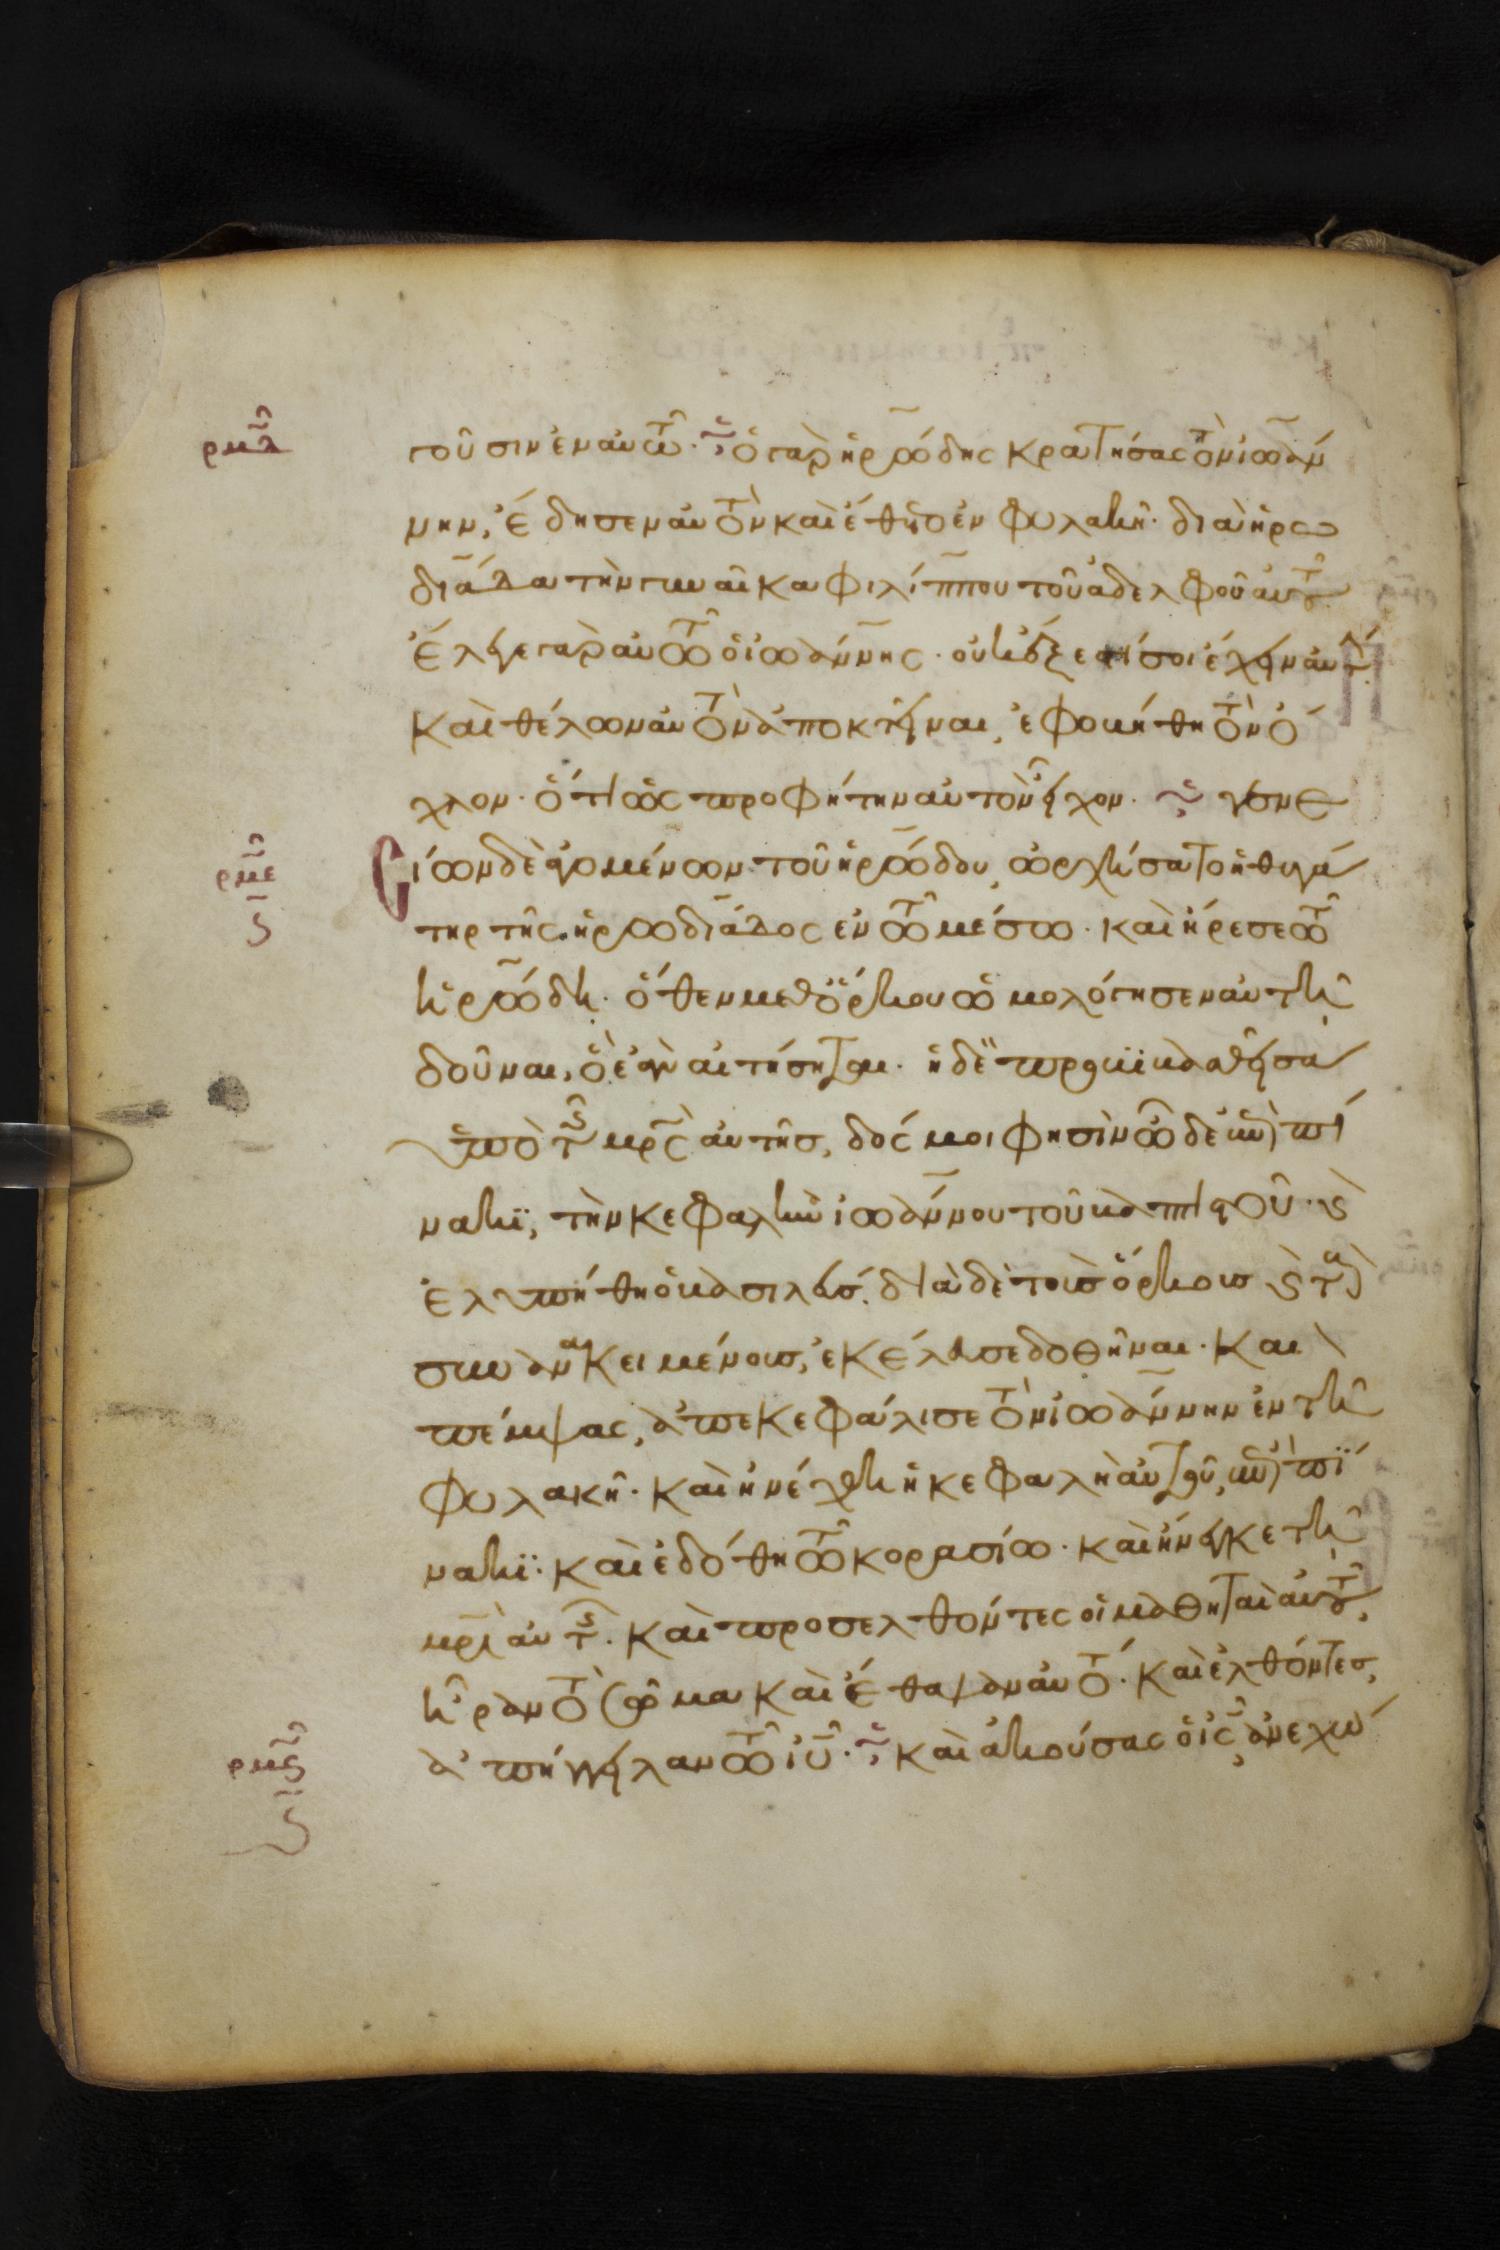 ρμδ
τοῦσιν ἐν αυτῶ· ὁ γὰρ ἡρώδης κρατήσας τὸν ἰωάν
νην, ἔδησεν αυτὸν καὶ ἔθετο ἐν φυλακῆ· διὰ ἡρω
διάδα τὴν γυναῖκα φιλίππου τοῦ ἀδελφοῦ αυτοῦ
ἔλεγε γὰρ αυτῶ ὁ ἰωάννης· οὐκ ἔξεστί σοι ἔχειν αυτήν
καὶ θέλων αυτὸν ἀποκτεῖναι, ἐφοβήθη τὸν ὄ
χλον· ὅτι ὡς προφήτην αυτὸν εἶχον· γενε
ρμε
ς
σίων δὲ ἀγομένων τοῦ ἡρώδου, ὠρχήσατο ἡ θυγά
τηρ τῆς ἡρωδιάδος ἐν τῶ μέσω· καὶ ἤρεσε τῶ
ἡρώδη· ὅθεν μεθ ὅρκου ὡμολόγησεν αυτῆ
δοῦναι, ὃ ἐὰν αιτήσηται· ἡ δὲ προβιβασθεῖσα
ὑπὸ τῆς μρς αυτῆς, δός μοι φησὶν ὧδε ἐπὶ πί
νακι, τὴν κεφαλὴν ἰωάννου τοῦ βαπτιστοῦ· καὶ
ἐλυπήθη ὁ βασιλεύς, διὰ δὲ τοὺς ὅρκους καὶ τοὺς
συνανακειμένους, ἐκέλευσε δοθῆναι· Καὶ
πέμψας, ἀπεκεφάλισε τὸν ἰωάννην ἐν τῆ
φυλακῆ· καὶ ἠνέχθη ἡ κεφαλὴ αυτοῦ, ἐπὶ πί
νακι· καὶ ἐδόθη τῶ κορασίω· καὶ ἤνεγκε τῆ
μρὶ αυτῆς· καὶ προσελθόντες οἱ μαθηταὶ αυτοῦ,
ἦραν τὸ σῶμα καὶ ἔθαψαν αυτό· καὶ ἐλθόντες,
ρμς
ς
ἀπήγγειλαν τῶ ιυ· καὶ ἀκούσας ὁ ις, ἀνεχώ